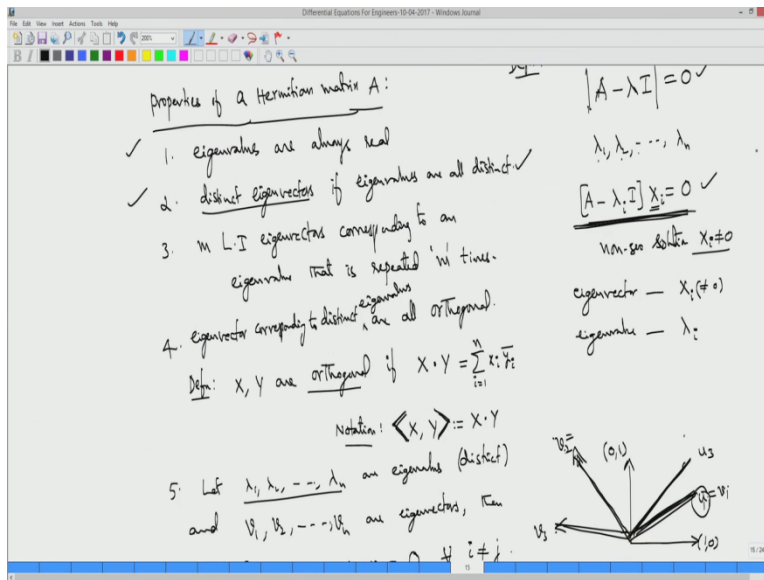 Differential Equations For Engineers-10-04-2017 - Windows Journal
File Edit View Insert Actions Tools Help
200%
B I
Properties of a Hermitian matrix A:
✓ 1. eigenvalues are always real
✓ 2. distinct eigenvectors if eigenvalues are all distinct. ✓
3. m L.I eigenvectors corresponding to an
eigenvalue that is repeated 'm' times.
4. eigenvector corresponding to distinct eigenvalues are all orthogonal.
Defn: X, Y are orthogonal if X · Y = \sum_{i=1}^{n} x_i \bar{y_i}
Notation: <X, Y> := X · Y
5. Let λ_1, λ_2, ---, λ_n are eigenvalues (distict)
and v_1, v_2, ----, v_n are eigenvectors, then
= 0 ∀ i ≠ j.
|A - λI| = 0 ✓
λ_1, λ_2, ---, λ_n
[A - λ_i I] X_i = 0 ✓
non-zero solution X_i ≠ 0
eigenvector — X_i (≠ 0)
eigenvalue — λ_i
v_2 =
(0,1)
u_3
u_1 = v_1
v_3
(1,0)
15
15 / 24